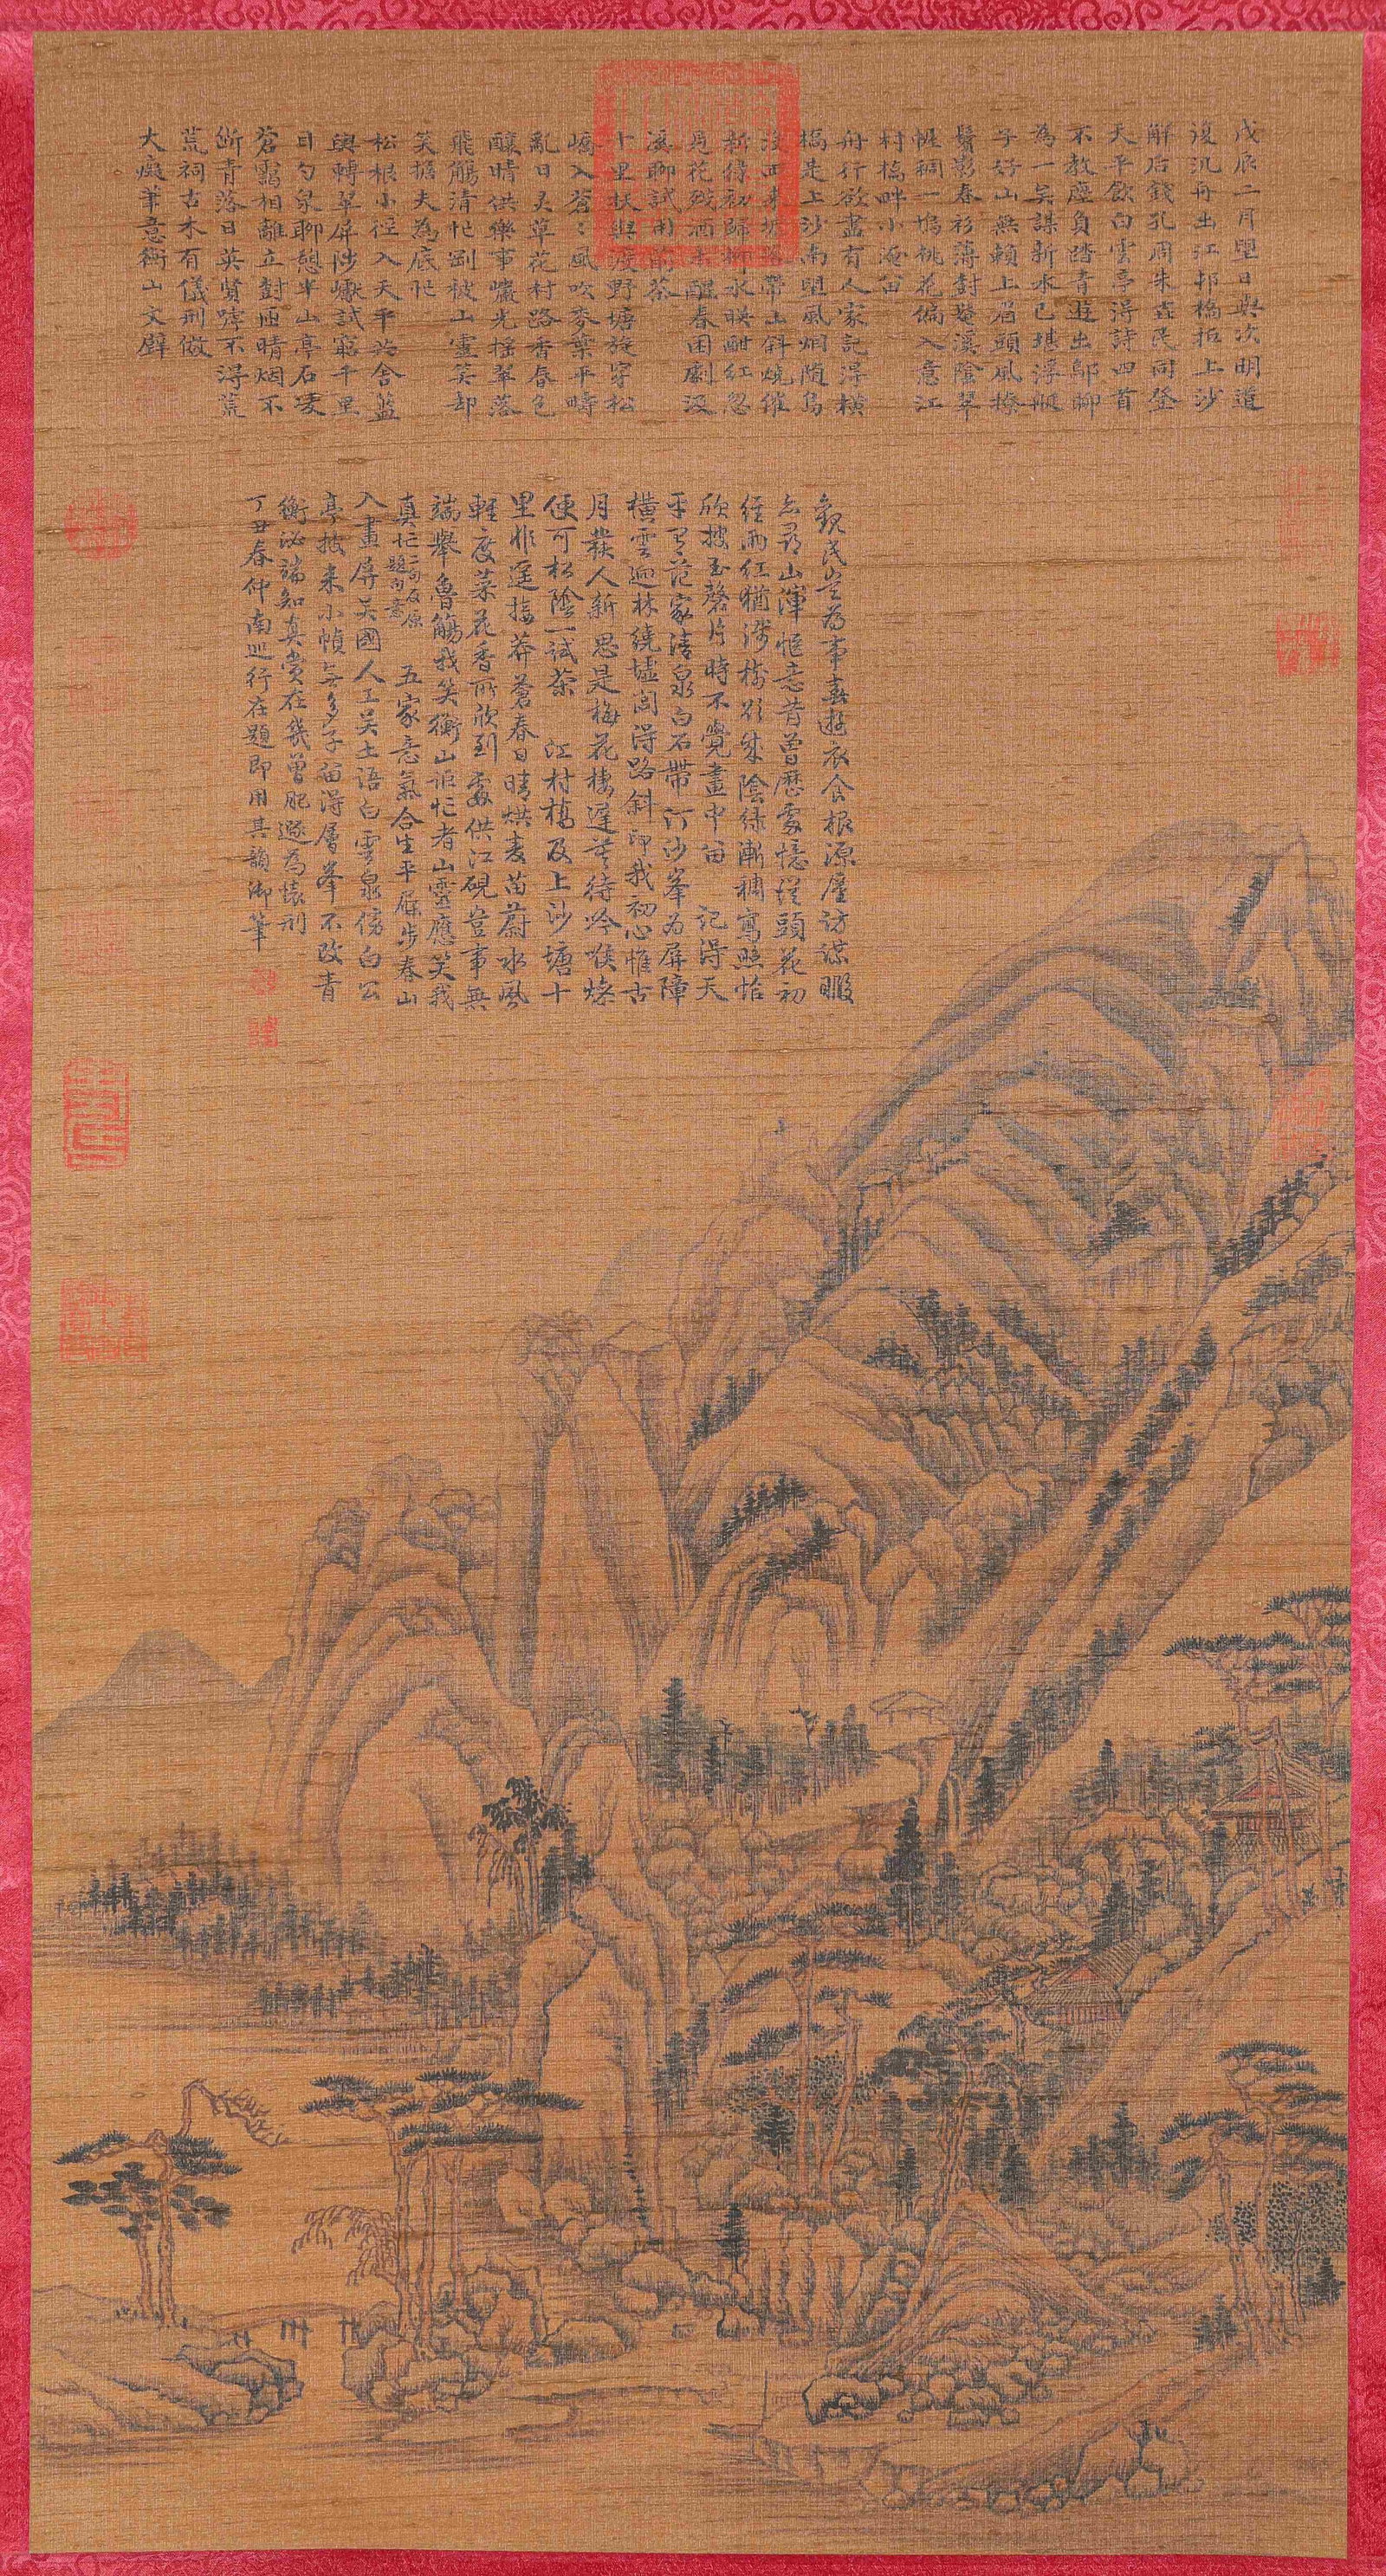 戊辰二月望日與次明道
復汎舟出江邨橋抵上沙
解后錢孔周朱堯民同登
天平飲白雲亭得詩四首
不教塵負踏青遊出郭聊
為一笑謀新水已堪浮艇
子好山無賴上眉頭風撩
鬢影春衫薄對蘸溪陰翠
幄稠一塢桃花偏入意江
村橋畔小淹留
舟行欲盡有人家記得橫
橋是上沙南盟風烟隨烏
後西來帶山斜燒催
新綠初歸柳水映酣紅忽
見花殘酒未醒春困劇汲
溪聊試雨前茶
十里扶輿度野塘旋穿松
嶠入蒼々風吹麥葉平疇
亂日炙草花村路香春色
釀晴供樂事巘光搖翠落
飛觴清忙剛被山靈笑却
笑擔夫為底忙
松根小徑入天平舍藍
輿轉翠屏陟巘試窮千里
目勺泉聊憩半山亭石凌
蒼靄相離立對西晴烟不
斷青落日英賢呼不得荒
荒祠古木有儀刑倣
大癡筆意衡山文璧
觀民豈為事嘉遊衣食根源廑訪謀暇
亦尋山渾愜意昔曾歷處憶從頭花初
經雨紅猶淺樹欲成陰綠漸稠寫照恰
欣披玉磬片時不覺畫中留 記得天
平有范家清泉白石帶汀沙峯为屏障
橫雲迥林繞墟閭得路斜即我初心惟古
月羨人新思是梅花棲遲莫待吟喉燥
便可松陰一試茶 江村橋及上沙塘十
里非遥接莽蒼春日晴烘麦苗蔚水風
輕度菜花香所欣到處供江硯豈事無
端舉魯觴我笑衡山詎忙者山靈應笑我
真忙 一句反原題句意 五家意氣合生平屐步春山
入畫屏吴國人工吴土語白雲泉傍白公
亭披來小幀無多子留得層峯不改青
衡泌端知真賞在幾曾肥遯為懷刑
丁丑春仲南巡行在題即用其韻御筆